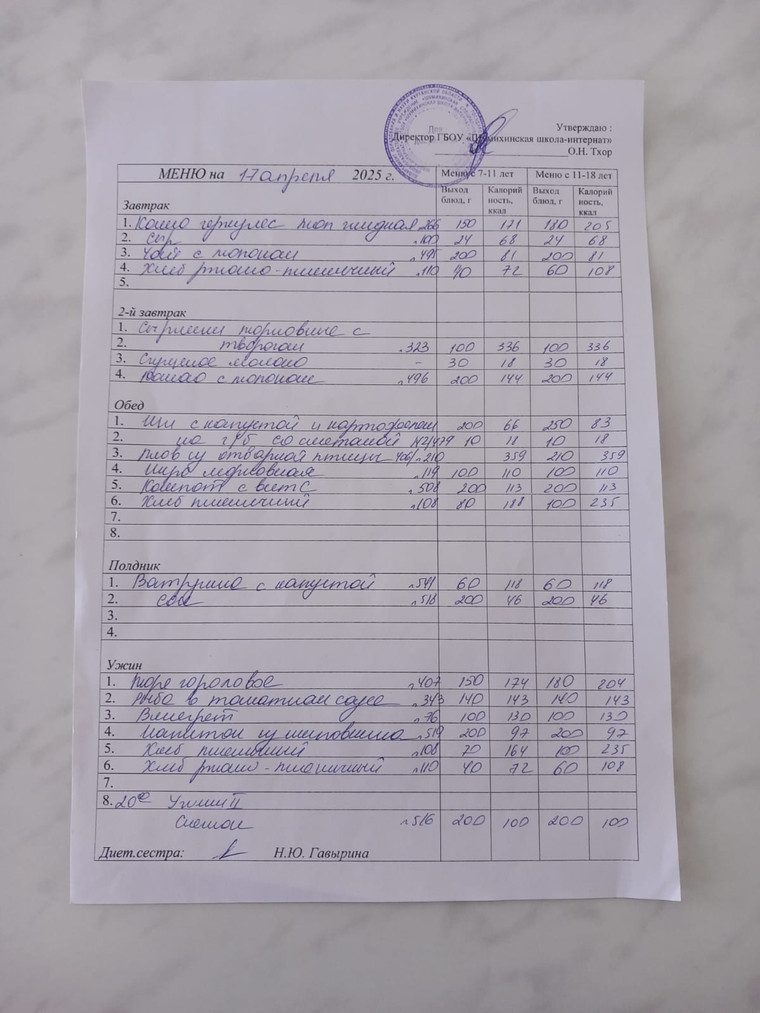 Утверждаю :
Директор ГБОУ «Шумихинская школа-интернат»
О.Н. Тхор
МЕНЮ на 17 апреля 2025 г. Меню с 7-11 лет Меню с 11-18 лет
Завтрак Выход блюд, г Калорий ность, ккал Выход блюд, г Калорий ность, ккал
1. Каша геркулес мол жидкая 266 150 171 180 205
2. Сыр №100 24 68 24 68
3. Чай с молоком №495 200 81 200 81
4. Хлеб ржано-пшеничный №110 40 72 60 108
5.
2-й завтрак
1. Сырники морковные с
2. творогом №323 100 336 100 336
3. Сгущеное молоко - 30 18 30 18
4. Какао с молоком №496 200 144 200 144
Обед
1. Щи с капустой и картофелем 200 66 250 83
2. на г/б со сметаной 142/479 10 18 10 18
3. Плов из отварной птицы 406/ 210 359 210 359
4. Икра морковная №119 100 110 100 110
5. Компот с вит С №508 200 113 200 113
6. Хлеб пшеничный №108 80 188 100 235
7.
8.
Полдник
1. Ватрушка с капустой №541 60 118 60 118
2. Сок №518 200 46 200 46
3.
4.
Ужин
1. Пюре гороховое №407 150 174 180 204
2. Рыба в томатном соусе №343 140 143 140 143
3. Винегрет №76 100 130 100 130
4. Напиток из шиповника №519 200 97 200 97
5. Хлеб пшеничный №108 70 164 100 235
6. Хлеб ржано-пшеничный №110 40 72 60 108
7.
8. 20 00 Ужин II
Снежок №516 200 100 200 100
Диет.сестра: Н.Ю. Гавырина